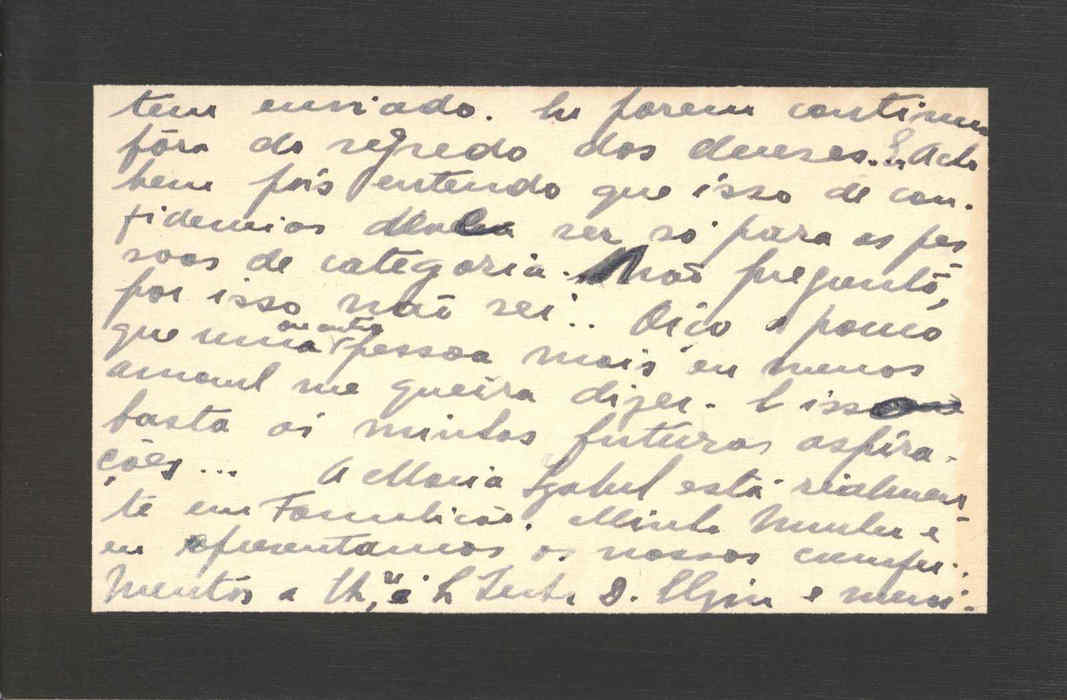 tem enviado. Eu porem continuo
fóra do segredo dos deuses... E Acho
bem pois entendo que isso de con-
fidencias ser só para as pes
soas de categoria. Não pregunto,
por isso não sei.. Oiço o pouco
que uma ou outra pessoa mais ou menos
amavel me queira dizer. E isso
basta ás minhas futuras aspira-
ções... A Maria Izabel está rialmen
te em Famalicão. Minha Mulher e
eu apresentamos os nossos cumpri-
mentos a D. e